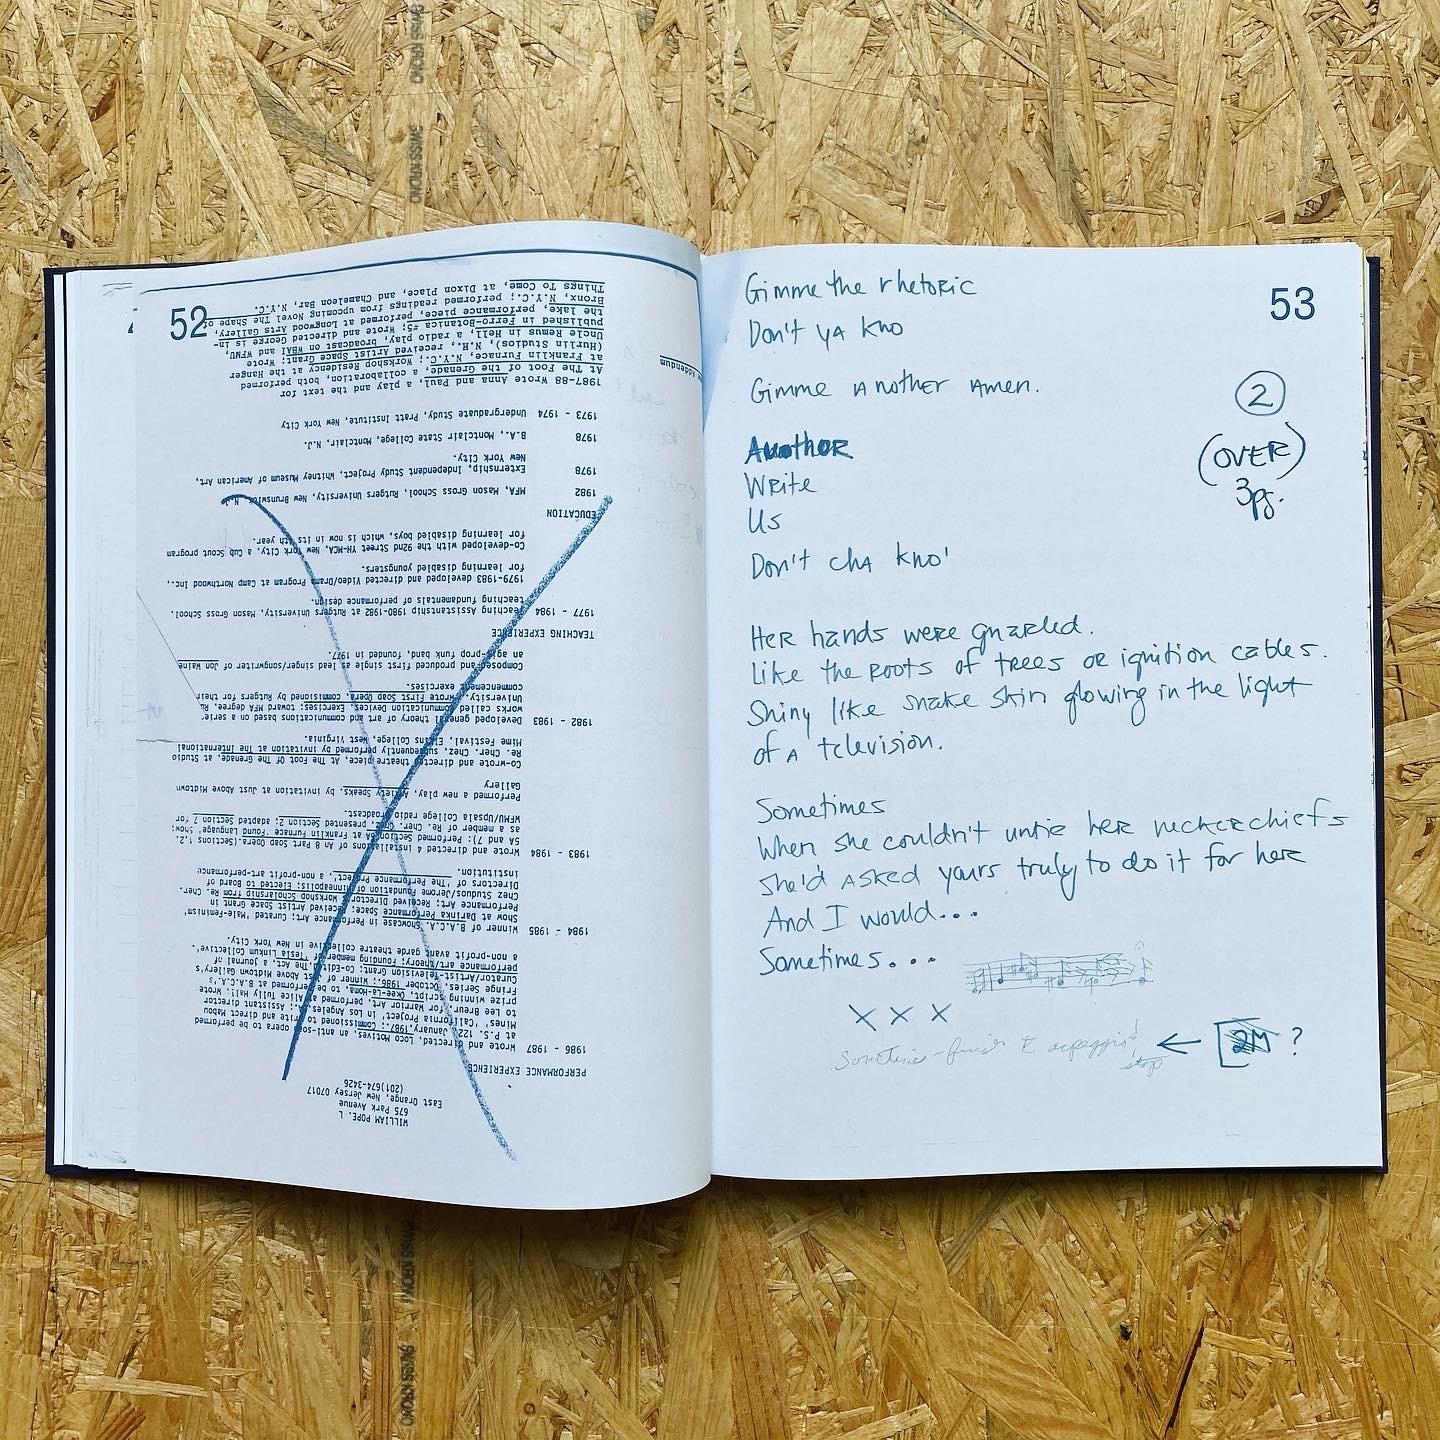 52
WILLIAM POPE. L
675 Park Avenue
East Orange, New Jersey 07017
(201)674-3426
PERFORMANCE EXPERIENCE
1986 - 1987 Wrote and directed, Loco Motives, an anti-soap opera to be performed
at P.S. 122, January,1987.; Commissioned to write and direct Mabou
Mines' 'California Project', in Los Angeles.; Assistant director
to Lee Breuer for Warrior Art, performed at Alice Tully Hall; Wrote
prize winning script, Okee-La-Homa, to be performed at B.A.C.A.'s
Fringe Series, October 1986.; Winner of Just Above Midtown Gallery's
Curator/Artist-Television Grant; Co-Editor, The Act, a journal of
performance art/theory; Founding member of Linkum Collective'.
a non-profit avant garde theatre collective in New York City.
1984 - 1985 Winner of B.A.C.A. Showcase in Performance Art; Curated 'Male-Feminism'
Show at Darinka Performance Space; Received Artist Space Grant in
Performance Art; Received Director Workshop Scholarship from Re. Cher.
Chez Studuos/Jerome Foundation of Minneapolis; Elected to Board of
Directors of 'The Performance Project', a non-profit art-performance
institution.
1983 - 1984 Wrote and directed 4 installations of An 8 Part Soap Opera.(Sections 1,2,
5A and 7): Performed Section 5A at Franklin Furnace 'Found Language' Show;
as a member of Re. Cher. Chez, presented Section 2; adapted Section 7 for
WFMU/Upsala College radio broadcast.
Performed a new play, Anxiety Speaks, by invitation at Just Above Midtown
Gallery
Co-wrote and directed theatre piece, At The Foot Of The Grenade, at Studio
Re. Cher. Chez, subsequently performed by invitation at The International
Mime Festival, Elkins College, West Virginia.
1982 - 1983 Developed general theory of art and communications based on a serie
works called 'Communication Devices, Exercises; toward MFA degree, Ru
University. Wrote First Soap Opera, comisioned by Rutgers for their
commencement exercises.
Composed and produced first single as lead singer/songwriter of Jon Waine
an agit-prop funk band, founded in 1977.
TEACHING EXPERIENCE
1977 - 1984 Teaching Assistantship 1980-1982 at Rutgers University, Mason Gross School,
teaching fundamentals of performance design.
1979-1983 developed and directed Video/Drama Program at Camp Northwood Inc.,
for learning disabled youngsters.
Co-developed with the 92nd Street YH-MCA, New York City, a Cub Scout program
for learning disabled boys, which is now in its year.
EDUCATION
1982 MFA, Mason Gross School, Rutgers University, New Brunswick, N.J.
1978 Externship, Independent Study Project, Whitney Museum of American Art,
New York City.
1978 B.A., Montclair State College, Montclair, N.J.
1973 - 1974 Undergraduate Study, Pratt Institute, New York City
1987-88 Wrote Anna and Paul, a play and the text for
At The Foot of the Grenade, a collaboration, both performed
at Franklin Furnace, N.Y.C.; Workshop Residency at the Hanger
(Hurlin Studios), N.H., received Artist Space Grant; Wrote
Uncle Remus in Hell, a radio play, broadcast on WBAI and WFMU,
published in Ferro-Botanica #5; Wrote and directed George is in-
the lake, performance piece, performed at Longwood Arts Gallery,
Bronx, N.Y.C.; performed readings from upcoming Novel The Shape of
Things To Come, at Dixon Place, and Chameleon Bar, N.Y.C.
Addendum
53
Gimme the rhetoric
Don't ya kno
Gimme Another Amen.
2
(OVER)
3pg.
Author
Write
Us
Don't cha kno'
Her hands were gnarled.
Like the roots of trees or ignition cables.
Shiny like snake skin glowing in the light
of a television.
Sometimes
When she couldn't untie her neckerchiefs
She'd asked yours truly to do it for here
And I would...
Sometimes...
x x x
arpeggio
stop
← [2M ?
SWISS KRONO
SWISS KRONO
SWISS KRONO
SWISS KRONO
SWISS KRONO